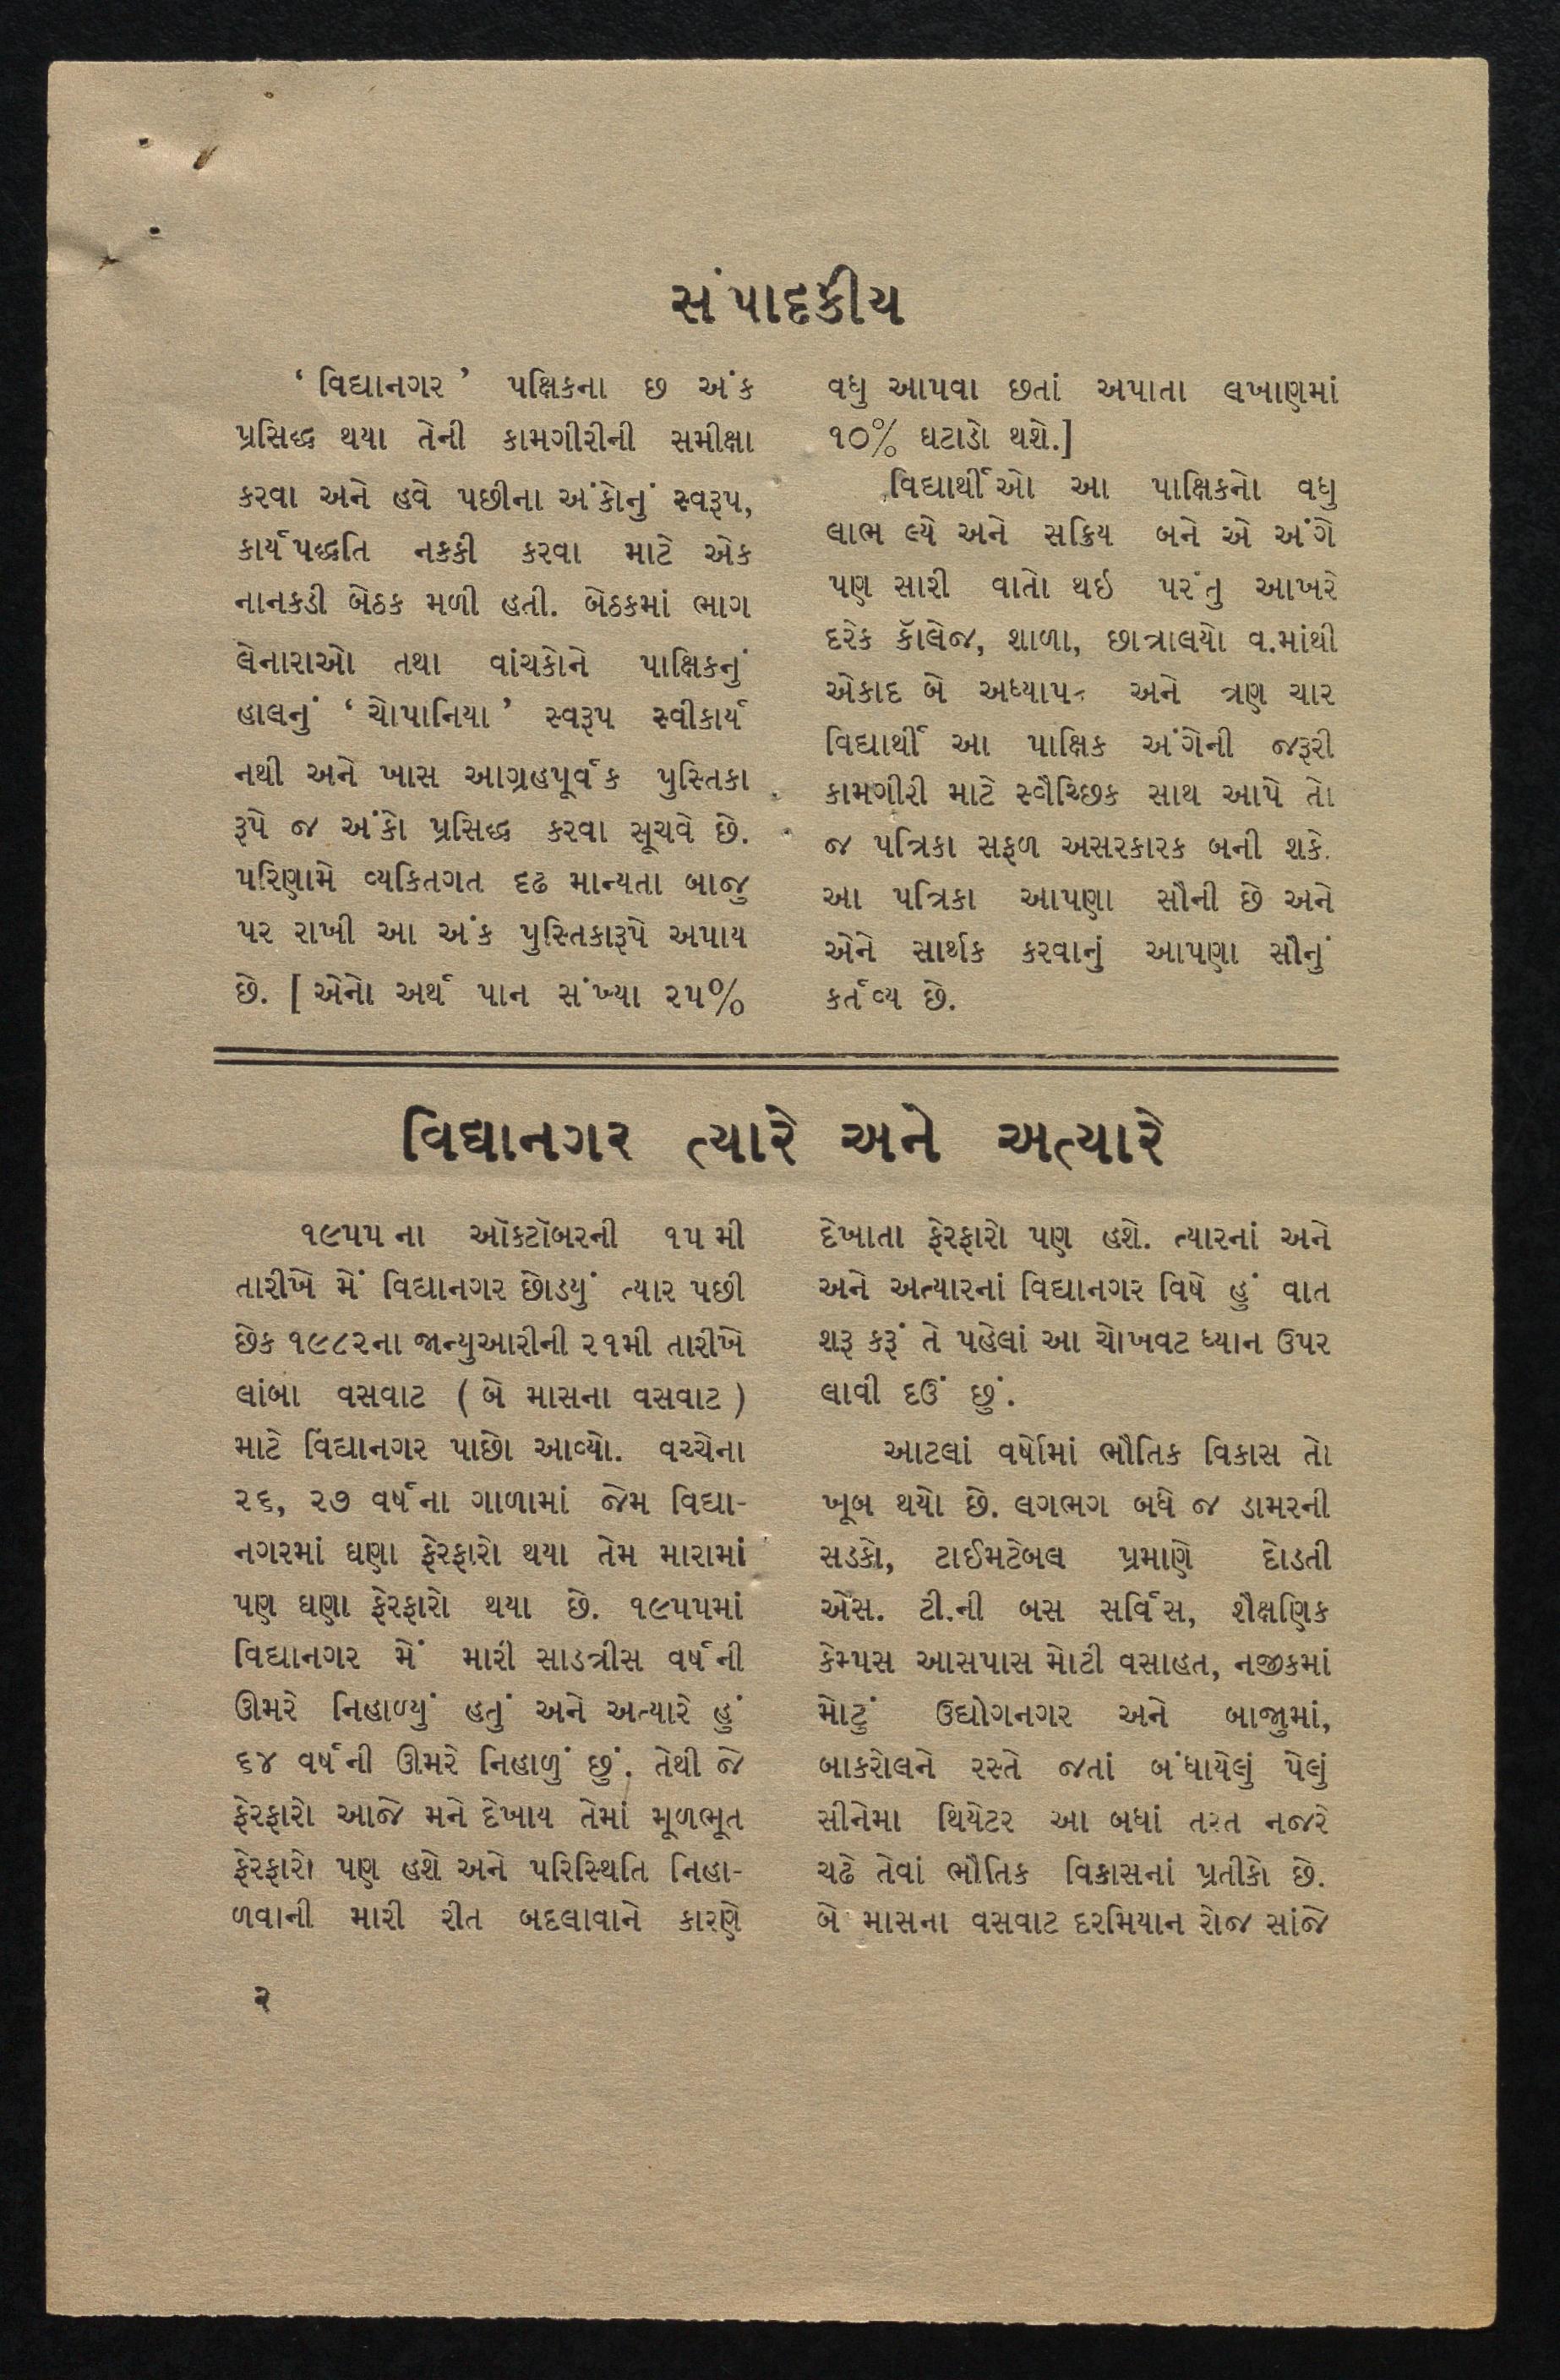 સંપાદકીય
‘ વિદ્યાનગર ’ પક્ષિકના છ અંક
પ્રસિદ્ધ થયા તેની કામગીરીની સમીક્ષા
કરવા અને હવે પછીના અંકોનું સ્વરૂપ,
કાર્યપદ્ધતિ નકકી કરવા માટે એક
નાનકડી બેઠક મળી હતી. બેઠકમાં ભાગ
લેનારાઓ તથા વાંચકોને પાક્ષિકનું
હાલનું ‘ ચોપાનિયા ’ સ્વરૂપ સ્વીકાર્ય
નથી અને ખાસ આગ્રહપૂર્વક પુસ્તિકા
રૂપે જ અંકો પ્રસિદ્ધ કરવા સૂચવે છે.
પરિણામે વ્યકિતગત દઢ માન્યતા બાજુ
પર રાખી આ અંક પુસ્તિકારૂપે અપાય
છે. [ એનો અર્થ પાન સંખ્યા ૨૫%
વધુ આપવા છતાં અપાતા લખાણમાં
૧૦% ઘટાડો થશે.]
વિદ્યાર્થીઓ આ પાક્ષિકનો વધુ
લાભ લ્યે અને સક્રિય બને એ અંગે
પણ સારી વાતો થઇ પરંતુ આખરે
દરેક કૉલેજ, શાળા, છાત્રાલયો વ.માંથી
એકાદ બે અધ્યાપક અને ત્રણ ચાર
વિદ્યાર્થી આ પાક્ષિક અંગેની જરૂરી
કામગીરી માટે સ્વૈચ્છિક સાથ આપે તો
જ પત્રિકા સફળ અસરકારક બની શકે.
આ પત્રિકા આપણા સૌની છે અને
એને સાર્થક કરવાનું આપણા સૌનું
કર્તવ્ય છે.
વિદ્યાનગર ત્યારે અને અત્યારે
૧૯૫૫ ના ઑકટૉબરની ૧૫ મી
તારીખે મેં વિદ્યાનગર છોડયું ત્યાર પછી
છેક ૧૯૮૨ના જાન્યુઆરીની ૨૧મી તારીખે
લાંબા વસવાટ ( બે માસના વસવાટ )
માટે વિદ્યાનગર પાછો આવ્યો. વચ્ચેના
૨૬, ૨૭ વર્ષના ગાળામાં જેમ વિદ્યા-
નગરમાં ઘણા ફેરફારો થયા તેમ મારામાં
પણ ઘણા ફેરફારો થયા છે. ૧૯૫૫માં
વિદ્યાનગર મેં મારી સાડત્રીસ વર્ષની
ઊમરે નિહાળ્યું હતું અને અત્યારે હું
૬૪ વર્ષની ઊમરે નિહાળું છું. તેથી જે
ફેરફારો આજે મને દેખાય તેમાં મૂળભૂત
ફેરફારો પણ હશે અને પરિસ્થિતિ નિહા-
ળવાની મારી રીત બદલાવાને કારણે
દેખાતા ફેરફારો પણ હશે. ત્યારનાં અને
અને અત્યારનાં વિદ્યાનગર વિષે હું વાત
શરૂ કરૂં તે પહેલાં આ ચોખવટ ધ્યાન ઉપર
લાવી દઉં છું.
આટલાં વર્ષોમાં ભૌતિક વિકાસ તો
ખૂબ થયો છે. લગભગ બધે જ ડામરની
સડકો, ટાઈમટેબલ પ્રમાણે દોડતી
એસ. ટી.ની બસ સર્વિસ, શૈક્ષણિક
કેમ્પસ આસપાસ મોટી વસાહત, નજીકમાં
મોટું ઉદ્યોગનગર અને બાજુમાં,
બાકરોલને રસ્તે જતાં બંધાયેલું પેલું
સીનેમા થિયેટર આ બધાં તરત નજરે
ચઢે તેવાં ભૌતિક વિકાસનાં પ્રતીકો છે.
બે માસના વસવાટ દરમિયાન રોજ સાંજે
૨